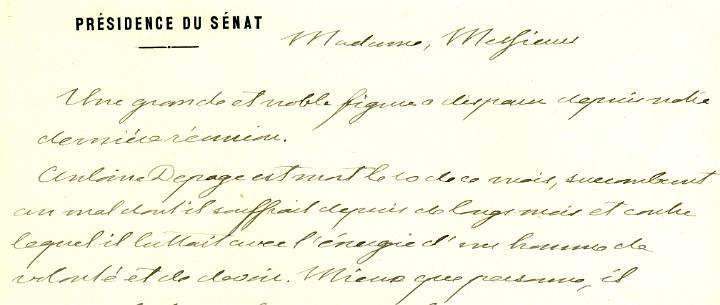 PRÉSIDENCE DU SÉNAT
Madame, Messieurs
Une grande et noble figure a disparu depuis notre
dernière réunion.
Antoine Depage est mort le 10 de ce mois, succombant
au mal dont il souffrait depuis de longs mois et contre
lequel il luttait avec l'énergie d'un homme de
volonté et de devoir. Mieux que personne, il